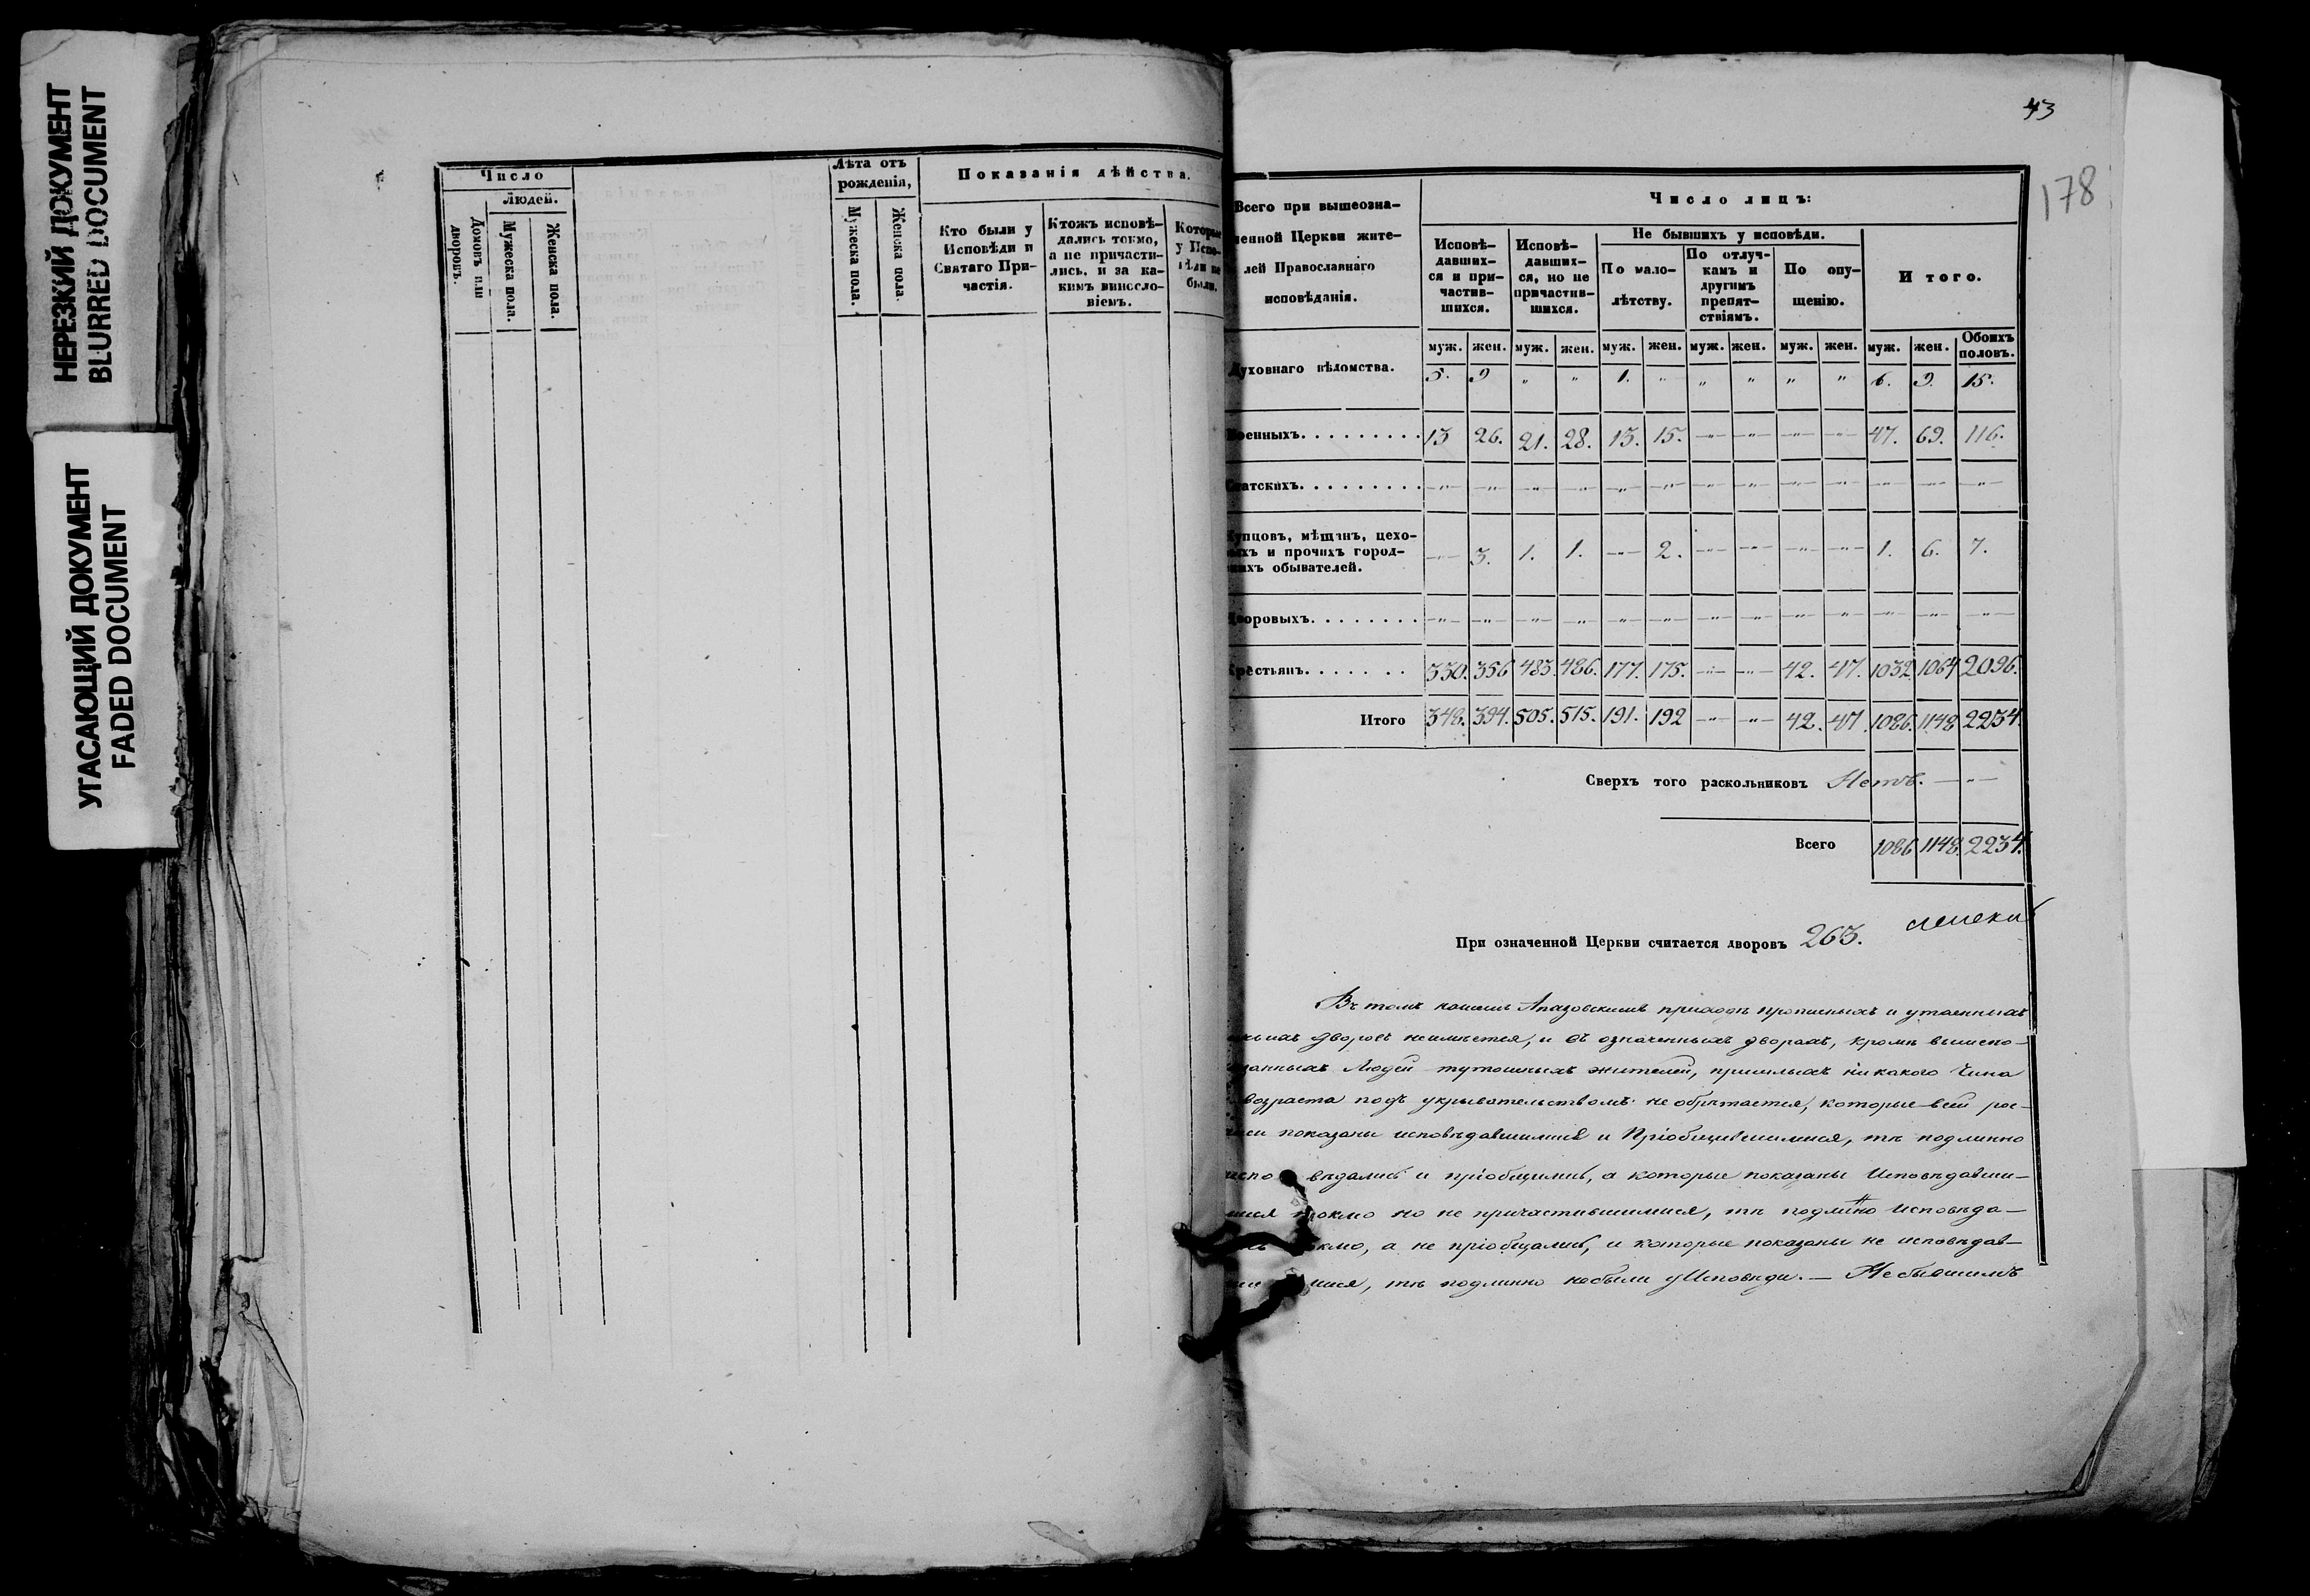 НЕРЕЗКИЙ ДОКУМЕНТ
BLURRED DOCUMENT
УГАСАЮЩИЙ ДОКУМЕНТ
FADED DOCUMENT
Число
Домовъ или дворовъ.
Людей.
Мужеска пола.
Женска пола.
Лѣта отъ рожденія,
Мужеска пола.
Женска пола.
Показанія дѣйства.
Кто были у Исповѣди и Святаго Причастія.
Ктожъ исповѣдались токмо, а не причастились, и за какимъ винословіемъ.
Которые у Исповѣди не были.
43
178
Всего при вышеозна-
ченной Церкви жите-
лей Православнаго
исповѣданія.
Число лицъ:
Исповѣ-
давших-
ся и при-
частив-
шихся.
Исповѣ-
давших-
ся, но не
причастив-
шихся.
Не бывшихъ у исповѣди.
По мало-
лѣтству.
По отлуч-
камъ и
другимъ
препят-
ствіямъ.
По опу-
щенію.
Итого.
муж. жен. муж. жен. муж. жен. муж. жен. муж. жен. муж. жен. Обоихъ половъ.
Духовнаго вѣдомства. 5. 9 " " 1. " " " " " 6. 9. 15.
Военныхъ. . . . . . . . . 13 26. 21. 28. 13. 15. -"- -"- -"- -"- 47. 69. 116.
Статскихъ. . . . . . . . . -"- -"- -"- -"- -"- -"- -"- -"- -"- -"- -"- -"- -"-
Купцовъ, мѣщанъ, цехо-
выхъ и прочихъ город-
скихъ обывателей. -"- 3. 1. 1. -"- 2. -"- -"- -"- -"- 1. 6. 7.
Дворовыхъ. . . . . . . . -"- -"- -"- -"- -"- -"- -"- -"- -"- -"- -"- -"- -"-
Крестьянъ. . . . . . . 330. 356 483. 486. 177. 175. -"- -"- 42. 47. 1032 1064 2096.
Итого 348. 394. 505. 515. 191. 192 -"- -"- 42. 47. 1086. 1148 2234.
Сверхъ того раскольниковъ Нетъ. -"-
Всего 1086 1148. 2234.
При означенной Церкви считается дворовъ 263.
Въ томъ нашемъ Апазовскомъ приходѣ прописныхъ и утаенныхъ
дворовъ неимѣется, и въ означенныхъ дворахъ, кромѣ вышепо-
казанныхъ Людей тутошныхъ жителей, пришлыхъ никакого Чина
возраста подъ укрывательствомъ не обрѣтается, которые всей рос-
писи показаны исповѣдавшимися и Пріобщившимися, тѣ подлинно
исповѣдались и пріобщились, а которые показаны Исповѣдавши-
мися токмо но не причастившимися, тѣ подлинно Исповѣда-
токмо, а не пріобщались, и которые показаны не исповѣдав-
мися, тѣ подлинно небыли у Исповѣди. — Небывшимъ